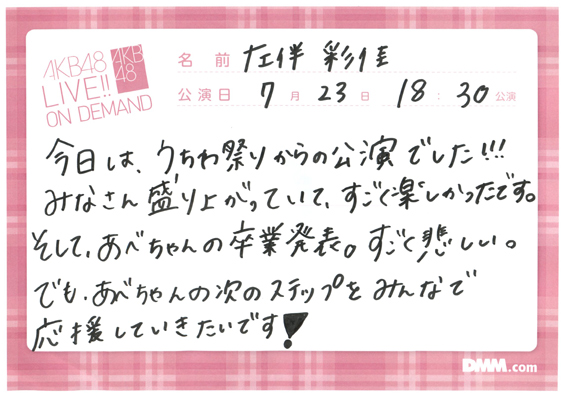 AKB48
LIVE!!
ON DEMAND
AKB
48
名前 左伴 彩佳
公演日 7月23日 18:30公演
今日は、うちわ祭りからの公演でした!!!
みなさん盛り上がっていて、すごく楽しかったです。
そして、あべちゃんの卒業発表。すごく悲しい。
でも、あべちゃんの次のステップをみんなで
応援していきたいです!
DMM.com